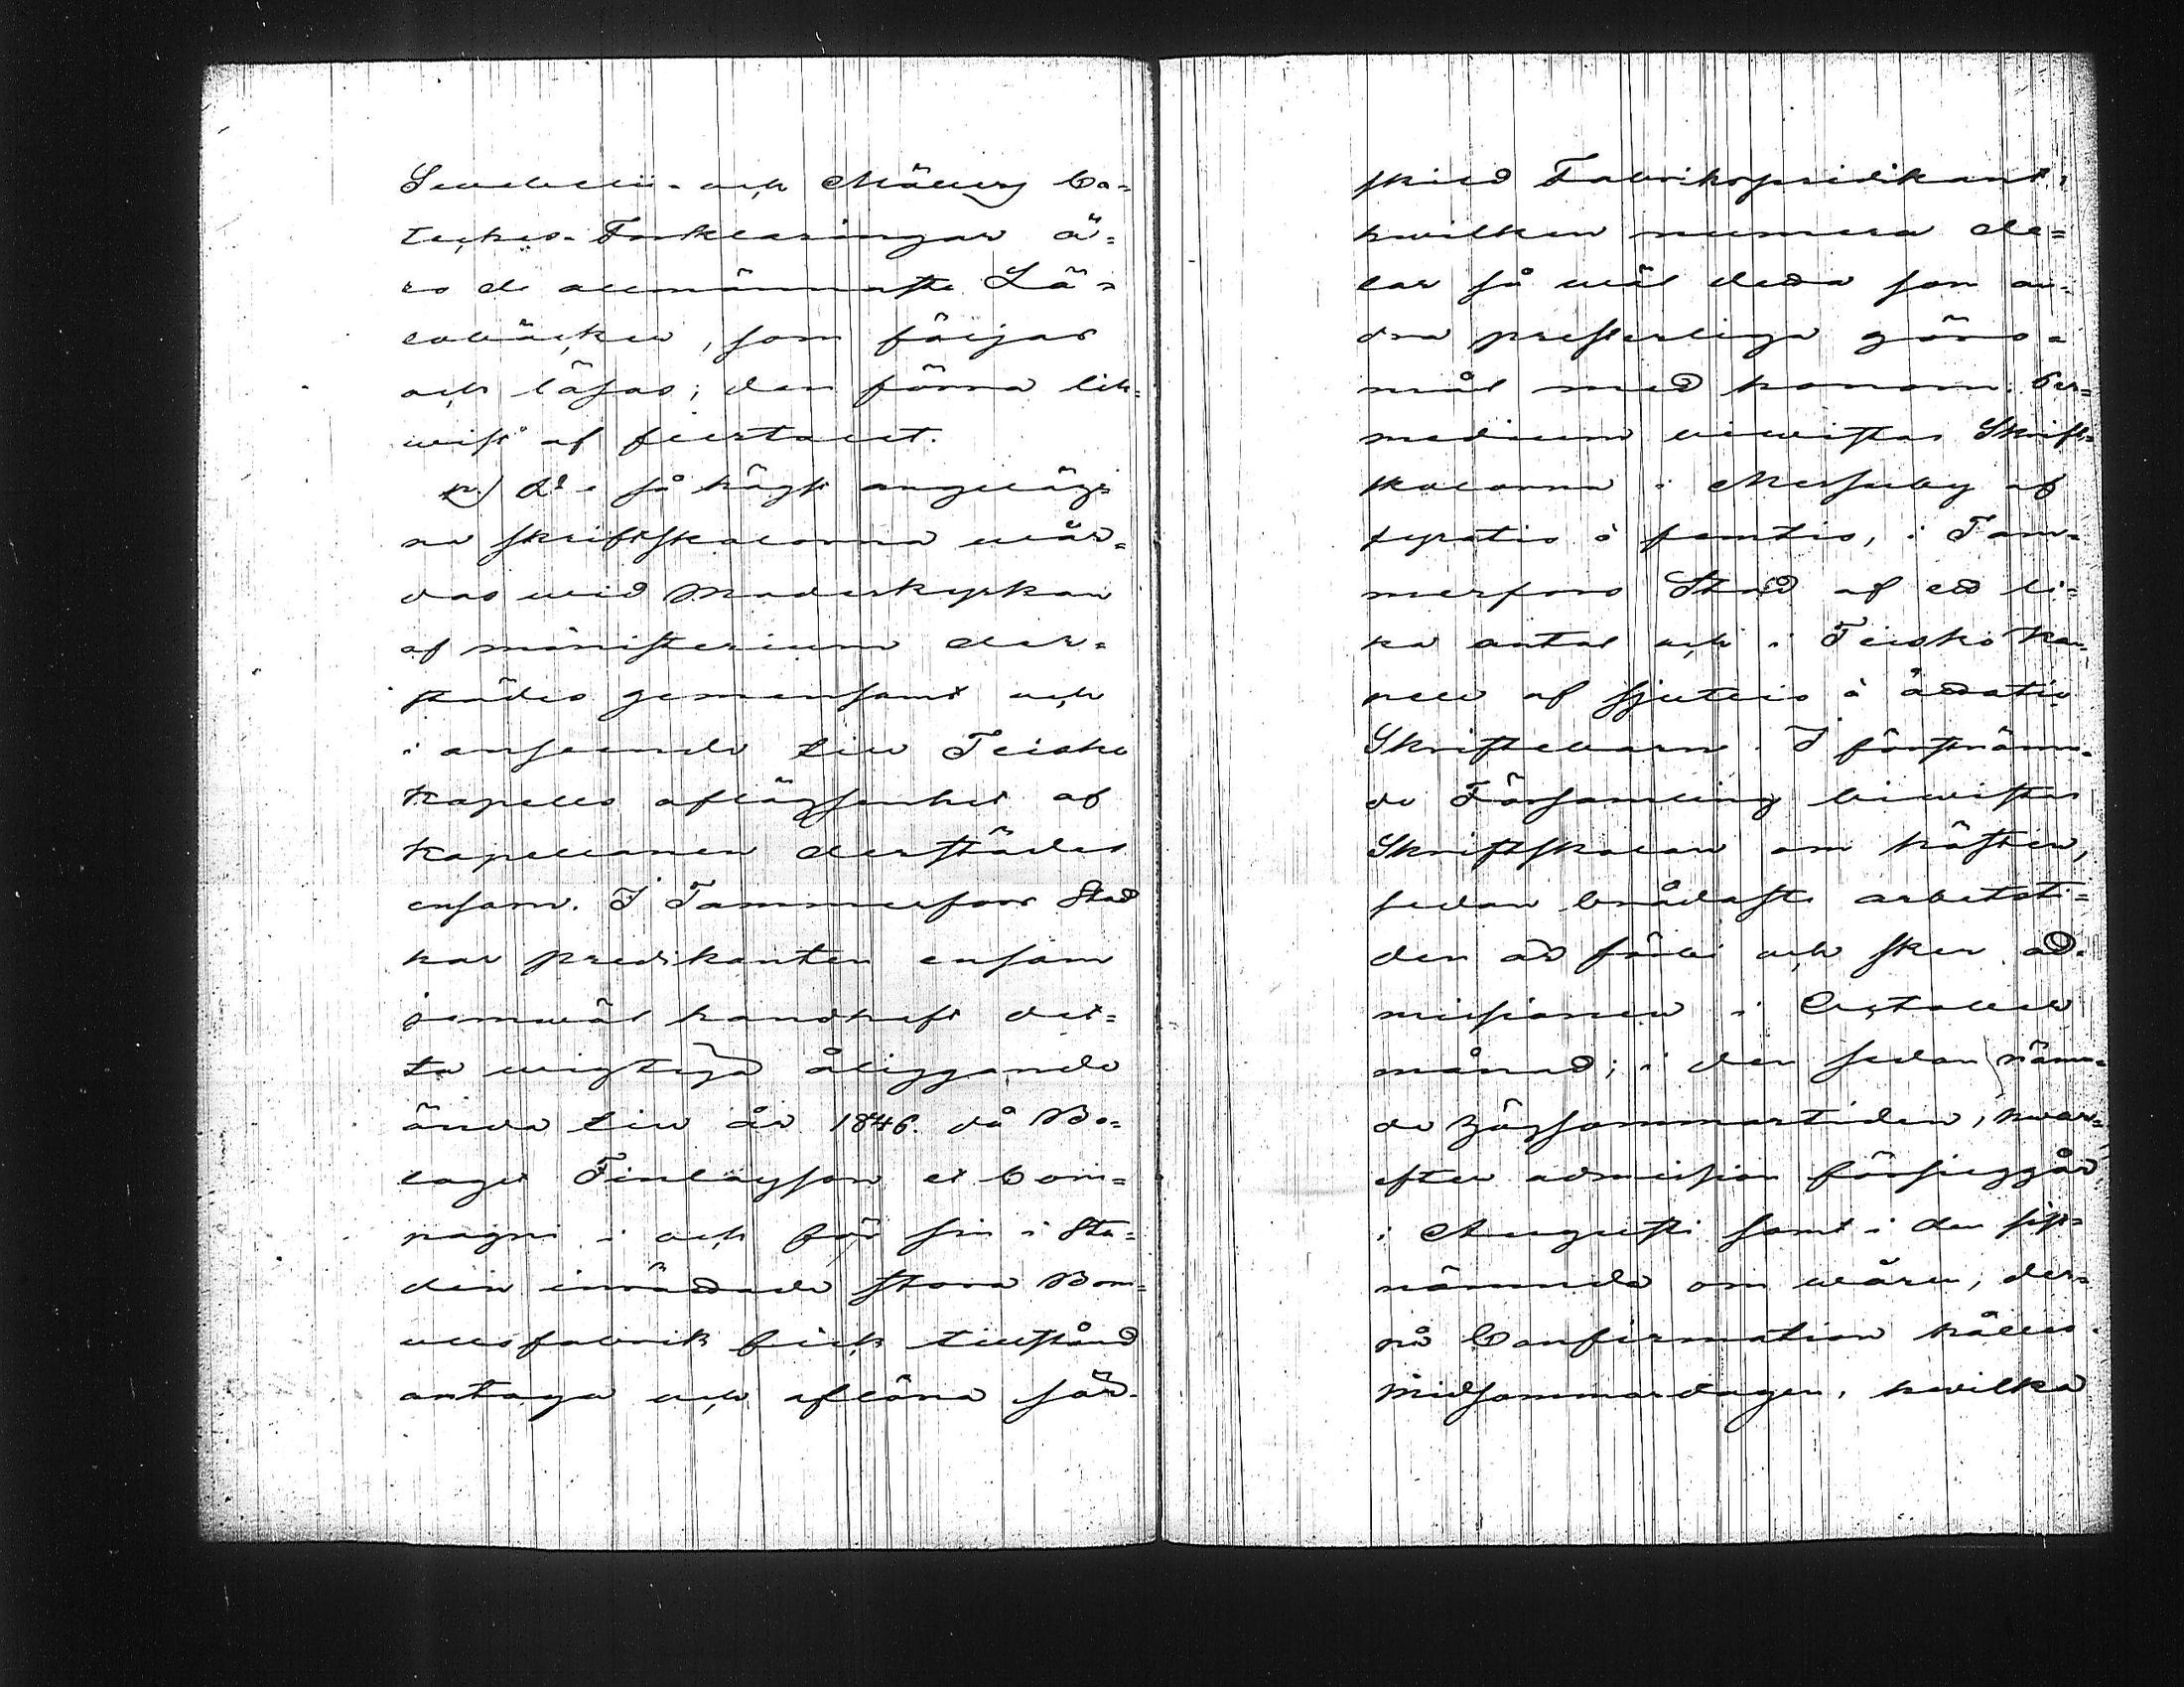 Svebelii- och Möllers Ca=
teches-Förklaringar ä=
ro de allmännaste Lä=
roböcker, som följas
och läsas; den förra lik=
wist af flertalet.
De så högt angeläg=
na skriftskolorna wår=
das wid Moderkyrkan
af ministerium der=
städes gemensamt och
i anseende till Teisko
kapells aflägsenhet af
Kapellanen derstädes
ensam. I Tammerfors Stad
har predikanten ensam
jemwäl handhaft det=
ta wigtiga åliggande
ända till år 1846. då Bo=
laget Finlayson et Com=
pagni i och för sin i Sta=
den inrättade stora Bom=
ullsfabrik fick tillstånd
antaga och aflöna sär=
skild Fabrikspredikant,
hwilken numera de=
lar så wäl detta som an=
dra presterliga göro=
mål med honom. Per
medium biwistas Skrift=
skolorna i Messuby af
fyratio à femtio, i Tam=
merfors Stad af ett li=
ka antal och i Teisko Ka=
pell af sjuttio à åttatio
Skriftebarn. I förstnämn=
de Församling biwistas
Skriftskolan om hösten,
sedan brådaste arbetsti=
den är förbi och sker ad=
missionen i October
månad; i den sedan nämn=
de högsommartiden, hwar=
efter admission försiggår
i Augusti samt i den sist=
nämnda om wåren, der=
på Confirmation hålles
Midsommardagen, hwilka